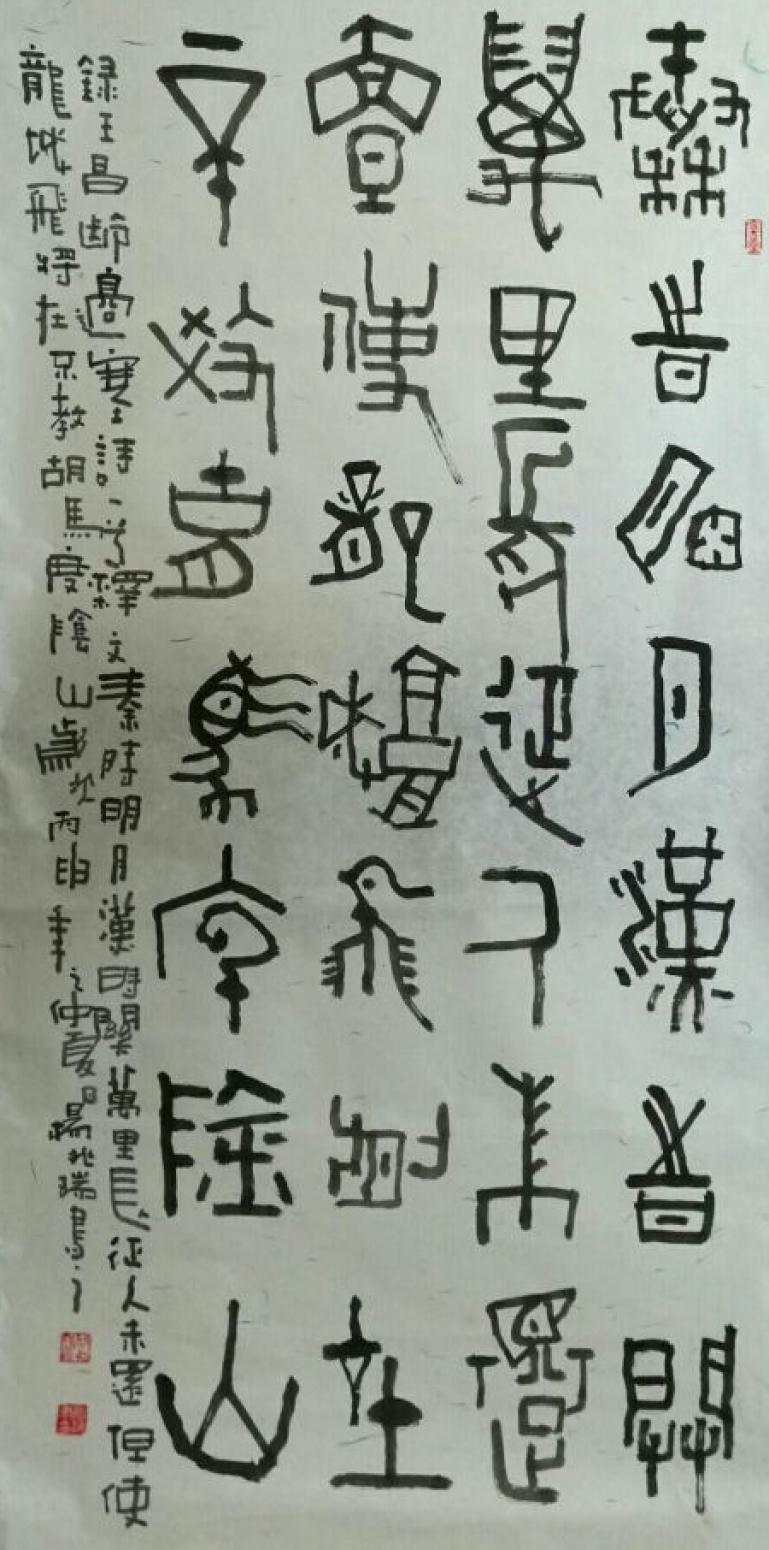 秦時明月漢時關
萬里長征人未還
但使龍城飛將在
不教胡馬度陰山
録王昌齡邊塞詩一首釋文秦時明月漢時關萬里長征人未還但使
龍城飛将在不教胡馬度陰山歲次丙申年之仲夏日楊兆瑞書之